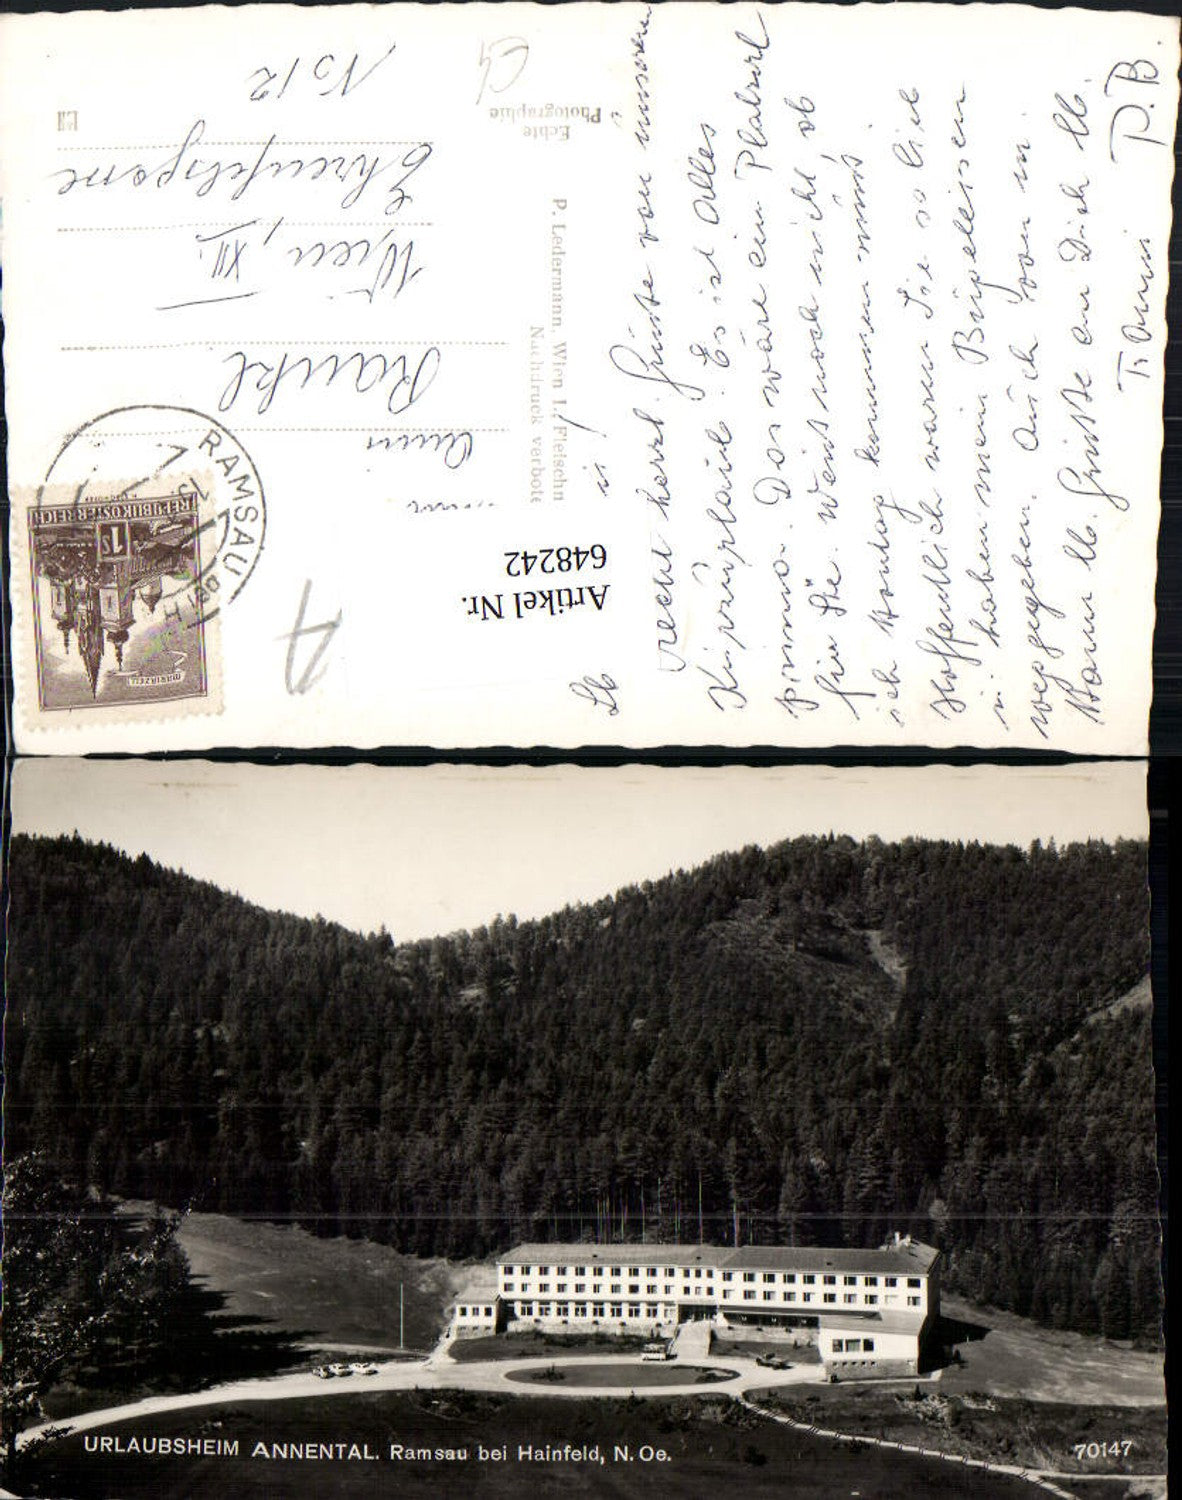 Lb.
recht herzl. Grüsse von unserem
Kurzurlaub. Es ist Alles
prima. Das wäre ein Platzerl
für Sie. Weiss noch nicht, ob
ich Montag kommen muss
Hoffentlich waren Sie so lieb
u. haben mein Bügeleisen
weggegeben. Auch von m.
Mann lb. Grüsse an Dich lb.
Fr. Anni P.B.
Artikel Nr.
648242
P. Ledermann, Wien I., Fleischm
Nachdruck verbote
Echte
Photographie
Rankl
Wien, XII.
Ehrenfelsgasse
No 12
RAMSAU BEI H
REPUBLIK ÖSTERREICH
1 S
MARIAZELL
URLAUBSHEIM ANNENTAL. Ramsau bei Hainfeld, N. Oe.
70147